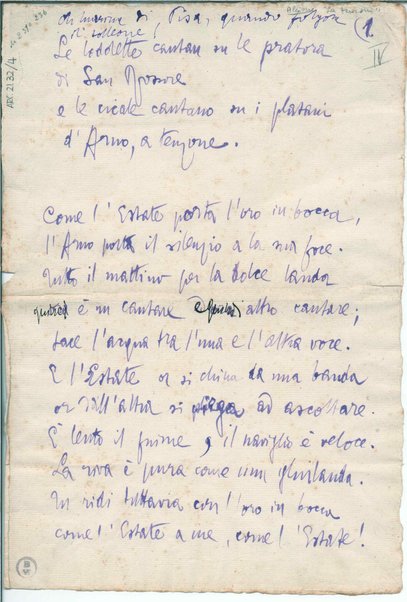 oh marina di Pisa, quando folgora
solleone!
1
IV
ARC. 21. 32/4
Le lodolette cantan su le pratora
di San Rossore
e le cicale cantano su i platani
d'Arno, a tenzone.
Come l'Estate porta l'oro in bocca,
l'Arno porta il silenzio a la sua foce.
Tutto il mattino per la dolce landa
quinci è un cantare e quindi altro cantare;
tace l'acqua tra l'una e l'altra voce.
E l'Estate or si china da una banda
or dall'altra si piega ad ascoltare.
È lento il fiume, il naviglio è veloce.
La riva è pura come una ghirlanda.
Tu ridi tuttavia con l'oro in bocca
come l'Estate a me, come l'Estate!